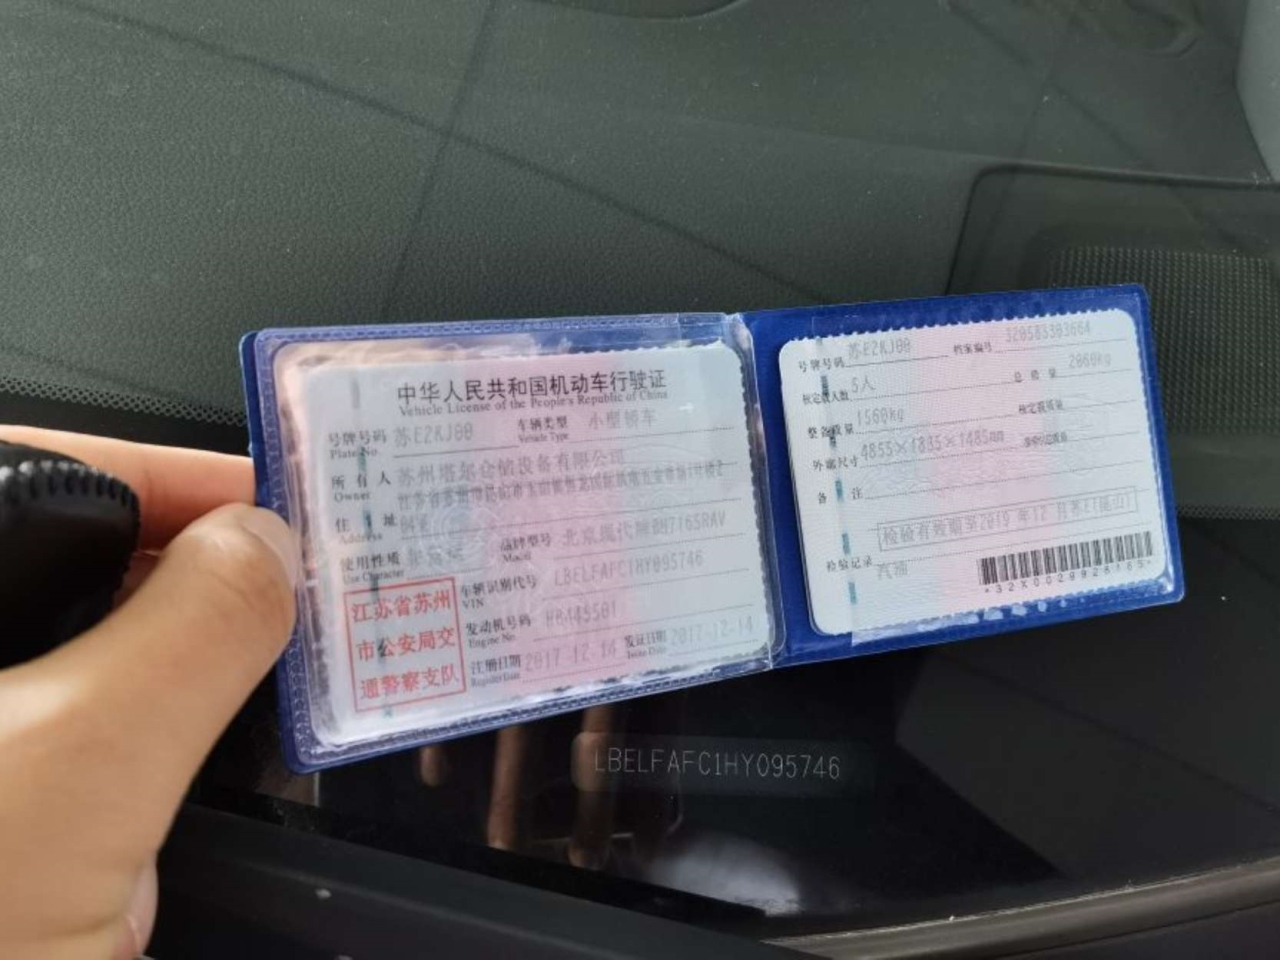 中华人民共和国机动车行驶证
Vehicle License of the People's Republic of China
号牌号码 苏E2KJ00 车辆类型 小型轿车
Plate No. Vehicle Type
所有人 苏州塔尔仓储设备有限公司
Owner
住址 江苏省苏州市昆山市玉山镇
Address
使用性质 品牌型号 北京现代牌BH7165RAV
Use Character Model
江苏省苏州
市公安局交
通警察支队
车辆识别代号 LBELFAFC1HY095746
VIN
发动机号码
Engine No.
注册日期 2017-12-14 发证日期 2017-12-14
Register Date Issue Date
号牌号码 苏E2KJ00 档案编号 320583303664
核定载人数 5人 总质量 2060kg
整备质量 1560kg 核定载质量
外廓尺寸 4855×1835×1485mm 准牵引总质量
备注
检验有效期至2019年12月苏E(昆山)
检验记录 汽油
LBELFAFC1HY095746